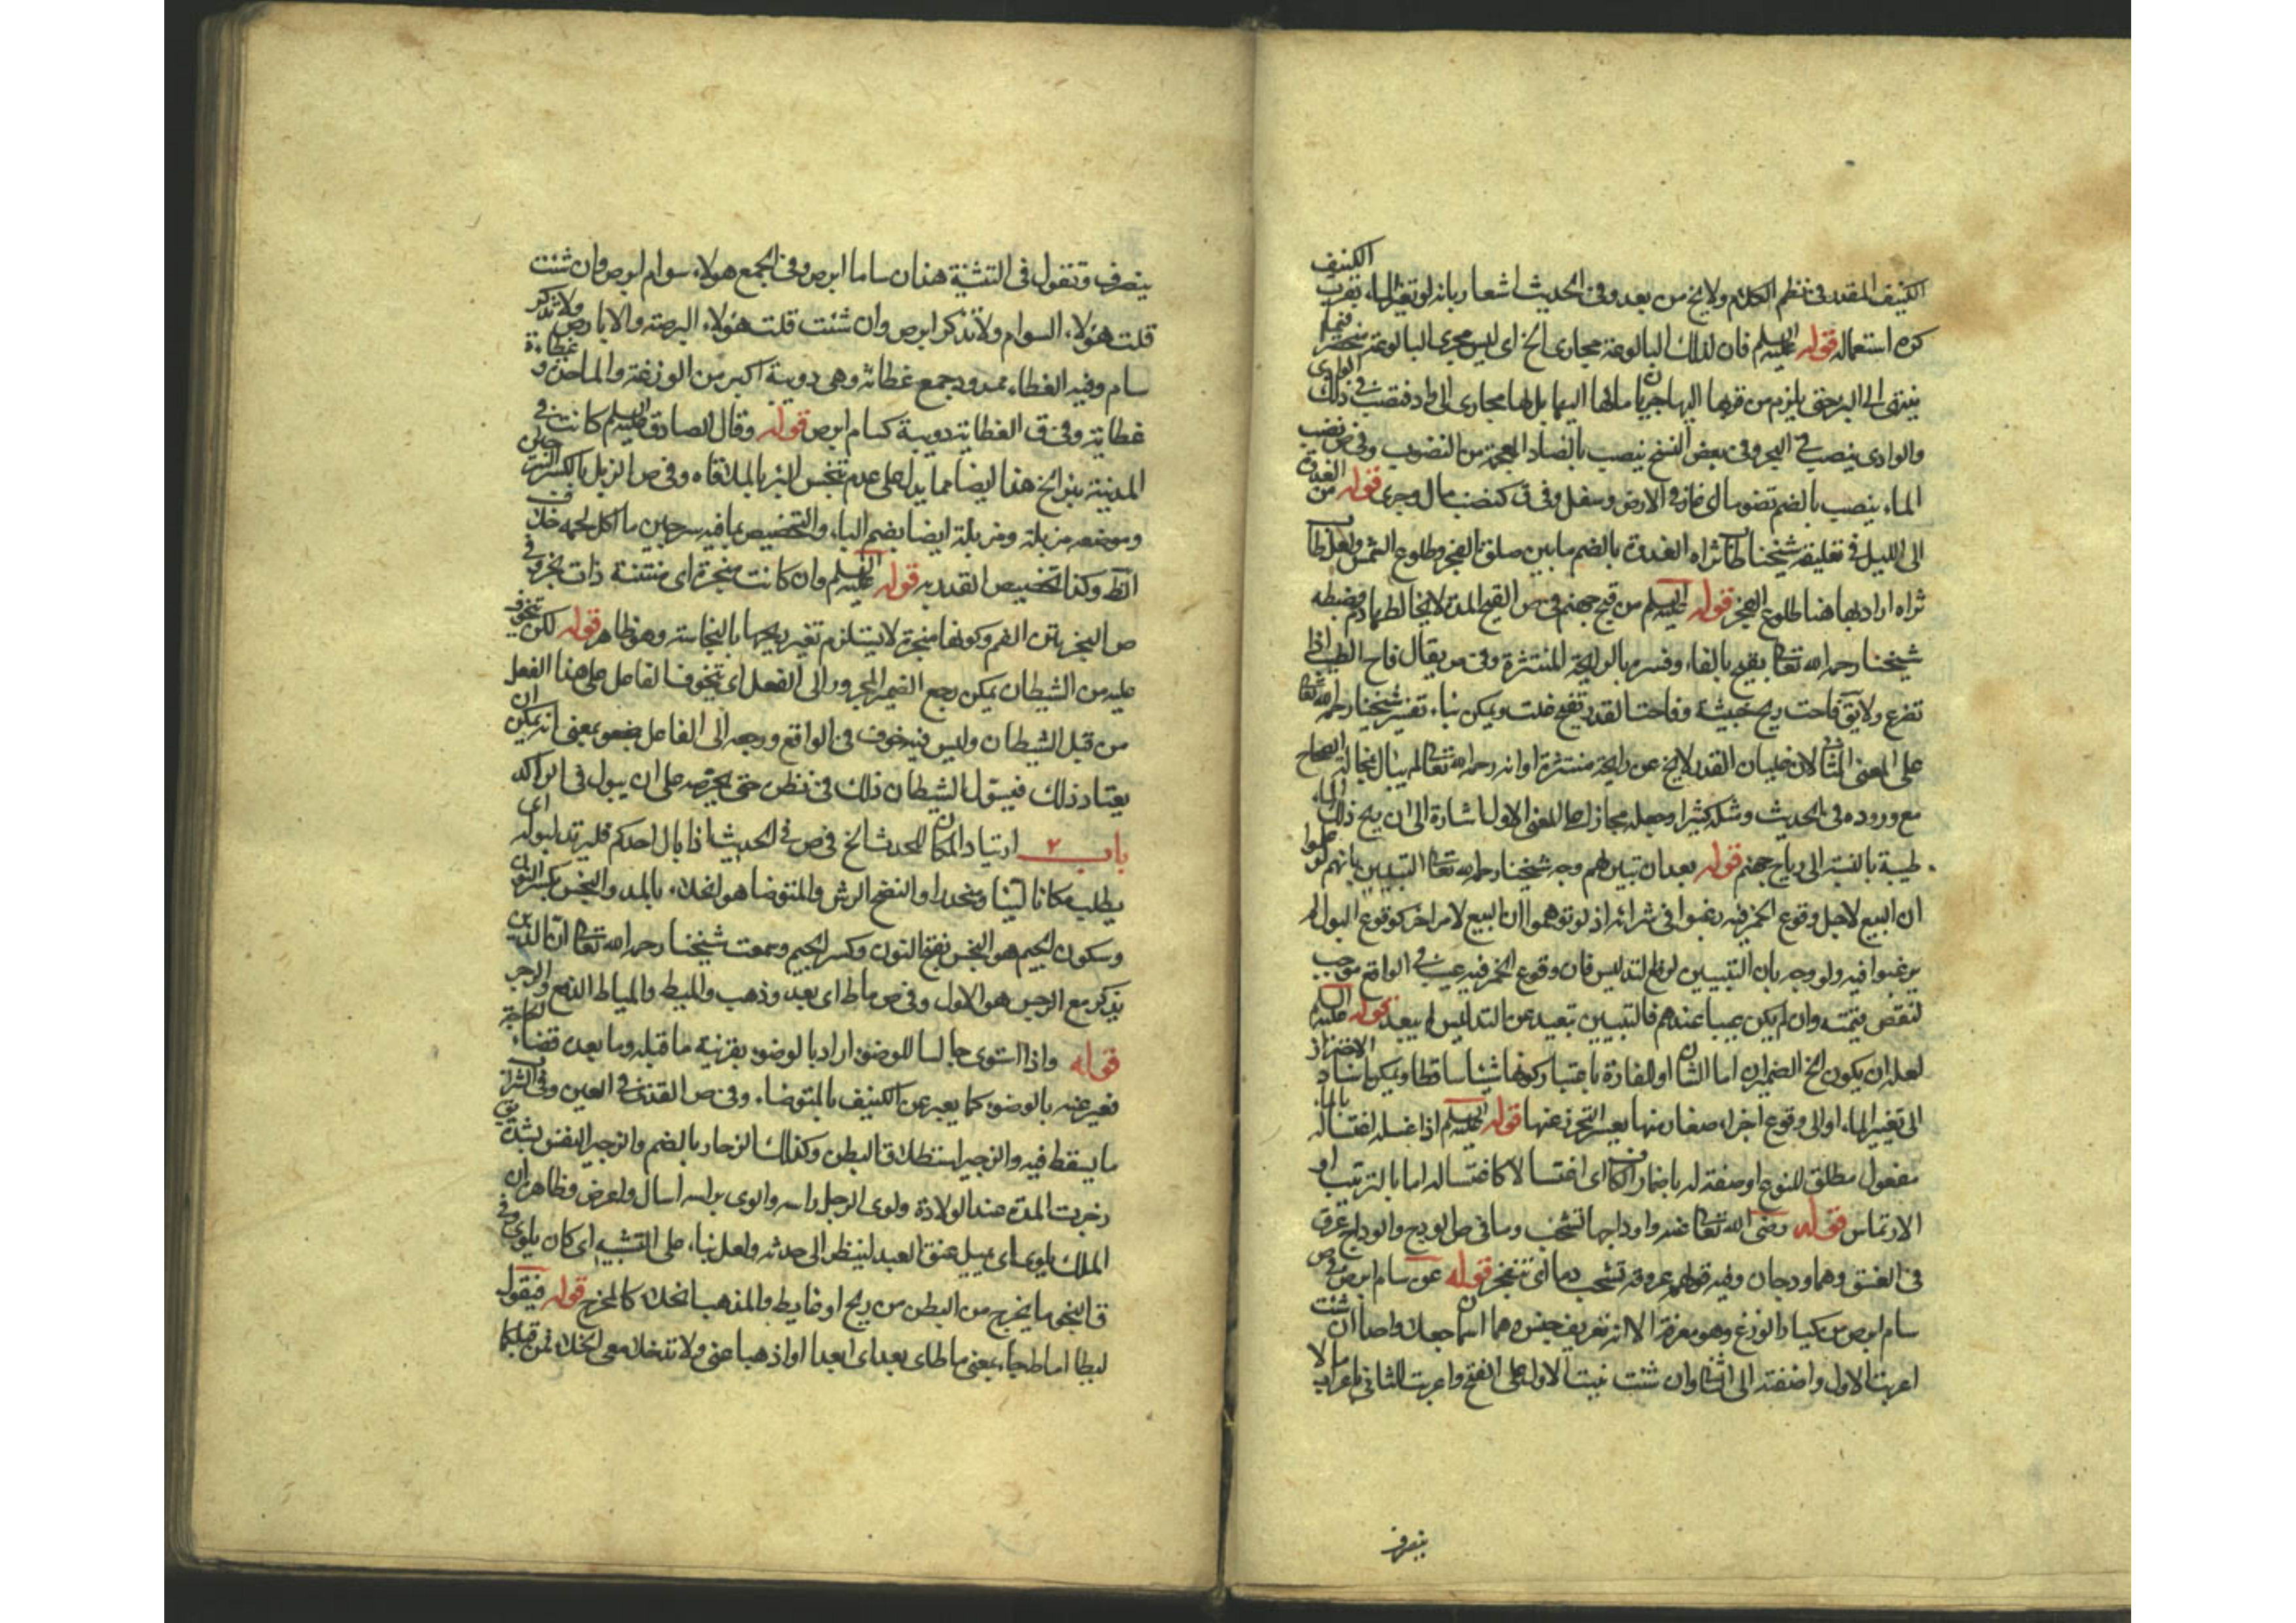 الكنيف المقدر فى نظم الكلام ولايخ من بعد وفى الحديث اشعار بانه لو تغير الماء بقرب الكنيف
كره استعماله قوله عليه السلم فان لذلك البالوعة مجارى الخ اى ليس مجرى البالوعة منحصرا فيما
ينتهى الى البئر حتى يلزم من قربها اليها جريان مائها اليها بل لها مجارى الى الواد فتصب فى ذلك الوادى
والوادى ينصب فى البحر وفى بعض النسخ ينصب بالضاد المعجمة من النضوب وفى ص نضب
الماء ينضب بالضم نضوبا اى غار فى الارض وسفل وفى ق كنضب سال وجرى قوله من الغدوة
الى الليل فى تعليقة شيخنا طاب ثراه الغدوة بالضم ما بين صلوة الفجر وطلوع الشمس ولعله طاب
ثراه اراد بها هنا طلوع الفجر قوله عليه السلم من قيح جهنم فى ص القيح المدة لا يخالطها دم وضبطه
شيخنا رحمه الله تعالى بفيح بالفاء وفسره بالرايحة المنتشرة وفى ص يقال فاح الطيب اذا
تضوع ولا يق فاحت ريح خبيثة وفاحت القدر تفيح غلت ويمكن بناء تفسير شيخنا رحمه الله تعالى
على المعنى الثانى لان غليان القدر لايخ عن رايحة منتشرة او انه رحمه الله تعالى لم يبال بمخالفة الصحاح
مع وروده فى الحديث وشله كثيرا وجعله مجازا على المعنى الاول اشارة الى ان ريح ذلك الماء
طيبة بالنسبة الى رياح جهنم قوله بعد ان تبين لهم وجه شيخنا رحمه الله تعالى التبيين بانهم لو علموا
ان البيع لاجل وقوع الخمر فيه رغبوا فى شرائه اذ لو توهموا ان البيع لامر اخر كوقوع البول لم
يرغبوا فيه ولو وجه بان التبيين لرفع التدليس فان وقوع الخمر فيه عيب فى الواقع موجب
لنقص قيمته وان لم يكن عيبا عندهم فالتبيين تبعيد عن التدليس لم يبعد قوله عليه السلم
لعله ان يكون الخ الضمير ان اما الشان او للفارة باعتبار كونها شيئا ساقطا ويمكن اسناد الاحتراز
الى تغير الماء او الى وقوع اجزاء صغار منها يعسر التحرز عنها قوله عليه السلم اذا غسله اغتساله بالماء
مفعول مطلق للنوع او صفة له باضمار الكاف اى اغتسالا كاغتساله اما بالترتيب او
الارتماس قوله رضى الله تعالى عنه واوداجها تشخب دما فى ص الودج والوداج عرق
فى العنق وهما ودجان وفيه قولهم عروقه تشخب دما اى تتفجر قوله عن سام ابرص فى ص
سام ابرص من كبار الوزغ وهو معرفة الا انه تعريف جنس وهما اسمان جعلا واحدا ان شئت
اعربت الاول واضفته الى الثانى وان شئت بنيت الاول على الفتح واعربت الثانى باعراب ما لا
ينصرف
ينصرف وتقول فى التثنية هذان ساما ابرص وفى الجمع هولاء سوام ابرص وان شئت
قلت هؤلاء السوام ولا تذكر ابرص وان شئت قلت هؤلاء البرصة والابارص ولا تذكر
سام وفيه الغطاء ممدود جمع غطائة وهى دويبة اكبر من الوزغة والواحدة غطاءة و
غطاية وفى ق الغطاية دويبة كسام ابرص قوله وقال الصادق عليه السلم كانت فى
المدينة بئر الخ هذا ايضا مما يدل على عدم تنجس البئر بالملاقاه وفى ص الزبل بالكسر السرجين
وموضعه مزبلة ومزبلة ايضا بضم الباء والتخصيص بما فيه سرجين ما اكل لحمه خلاف
الظ وكذا تخصيص القدر به قوله عليه السلم وان كانت مبخرة اى منتنة ذات بخر وفى
ص البخر نتن الفم وكونها مبخرة لا يستلزم تغير ريحها بالنجاسة وهو ظاهر قوله لكن يتخوف
عليه من الشيطان يمكن رجع الضمير المجرور الى الفعل اى يتخوف الفاعل على هذا الفعل
من قبل الشيطان وليس فيه خوف فى الواقع ورجعه الى الفاعل بمعنى انه يمكن ان
يعتاد ذلك فيسول الشيطان ذلك فى نظره حتى يحرصه على ان يبول فى الراكد
باب ٢ ارتياد المكان للحدث الخ فى ص فى الحديث اذا بال احدكم فليرتد لبوله اى
يطلب مكانا لينا ومنحدرا والنضح الرش والمتوضا هو الخلاء بالمد والنجس بكسر النون
وسكون الجيم هو النجس بفتح النون وكسر الجيم وسمعت شيخنا رحمه الله تعالى ان الذى
يذكر مع الرجس هو الاول وفى ص ماط اى بعد وذهب والميط والمياط الدفع والزجر
قوله واذا استوى جالسا للوضوء اراد بالوضوء بقرينة ما قبله وما بعده قضاء الحاجة
فعبر عنه بالوضوء كما يعبر عن الكنيف بالمتوضاء وفى ص القذى فى العين وفى الشراب
ما يسقط فيه والزحير استطلاق البطن وكذلك الزحار بالضم والزحير التنفس بشدة يق
زحرت المراة عند الولادة ولوى الرجل راسه والوى براسه امال واعرض فظاهر ان
الملك يلوى اى يميل عنق العبد لينظر الى حدثه ولعله بناء على التشبيه اى كان يلوى وفى
ق النجو ما يخرج من البطن من ريح او غايط والمذهب الخلاء كالمخرج قوله فيقول
ليطا اماطا جاء بمعنى ماطا اى بعدا اى ابعدا او اذهبا عنى ولا تدخلا معى الخلاء فمن قبلكما